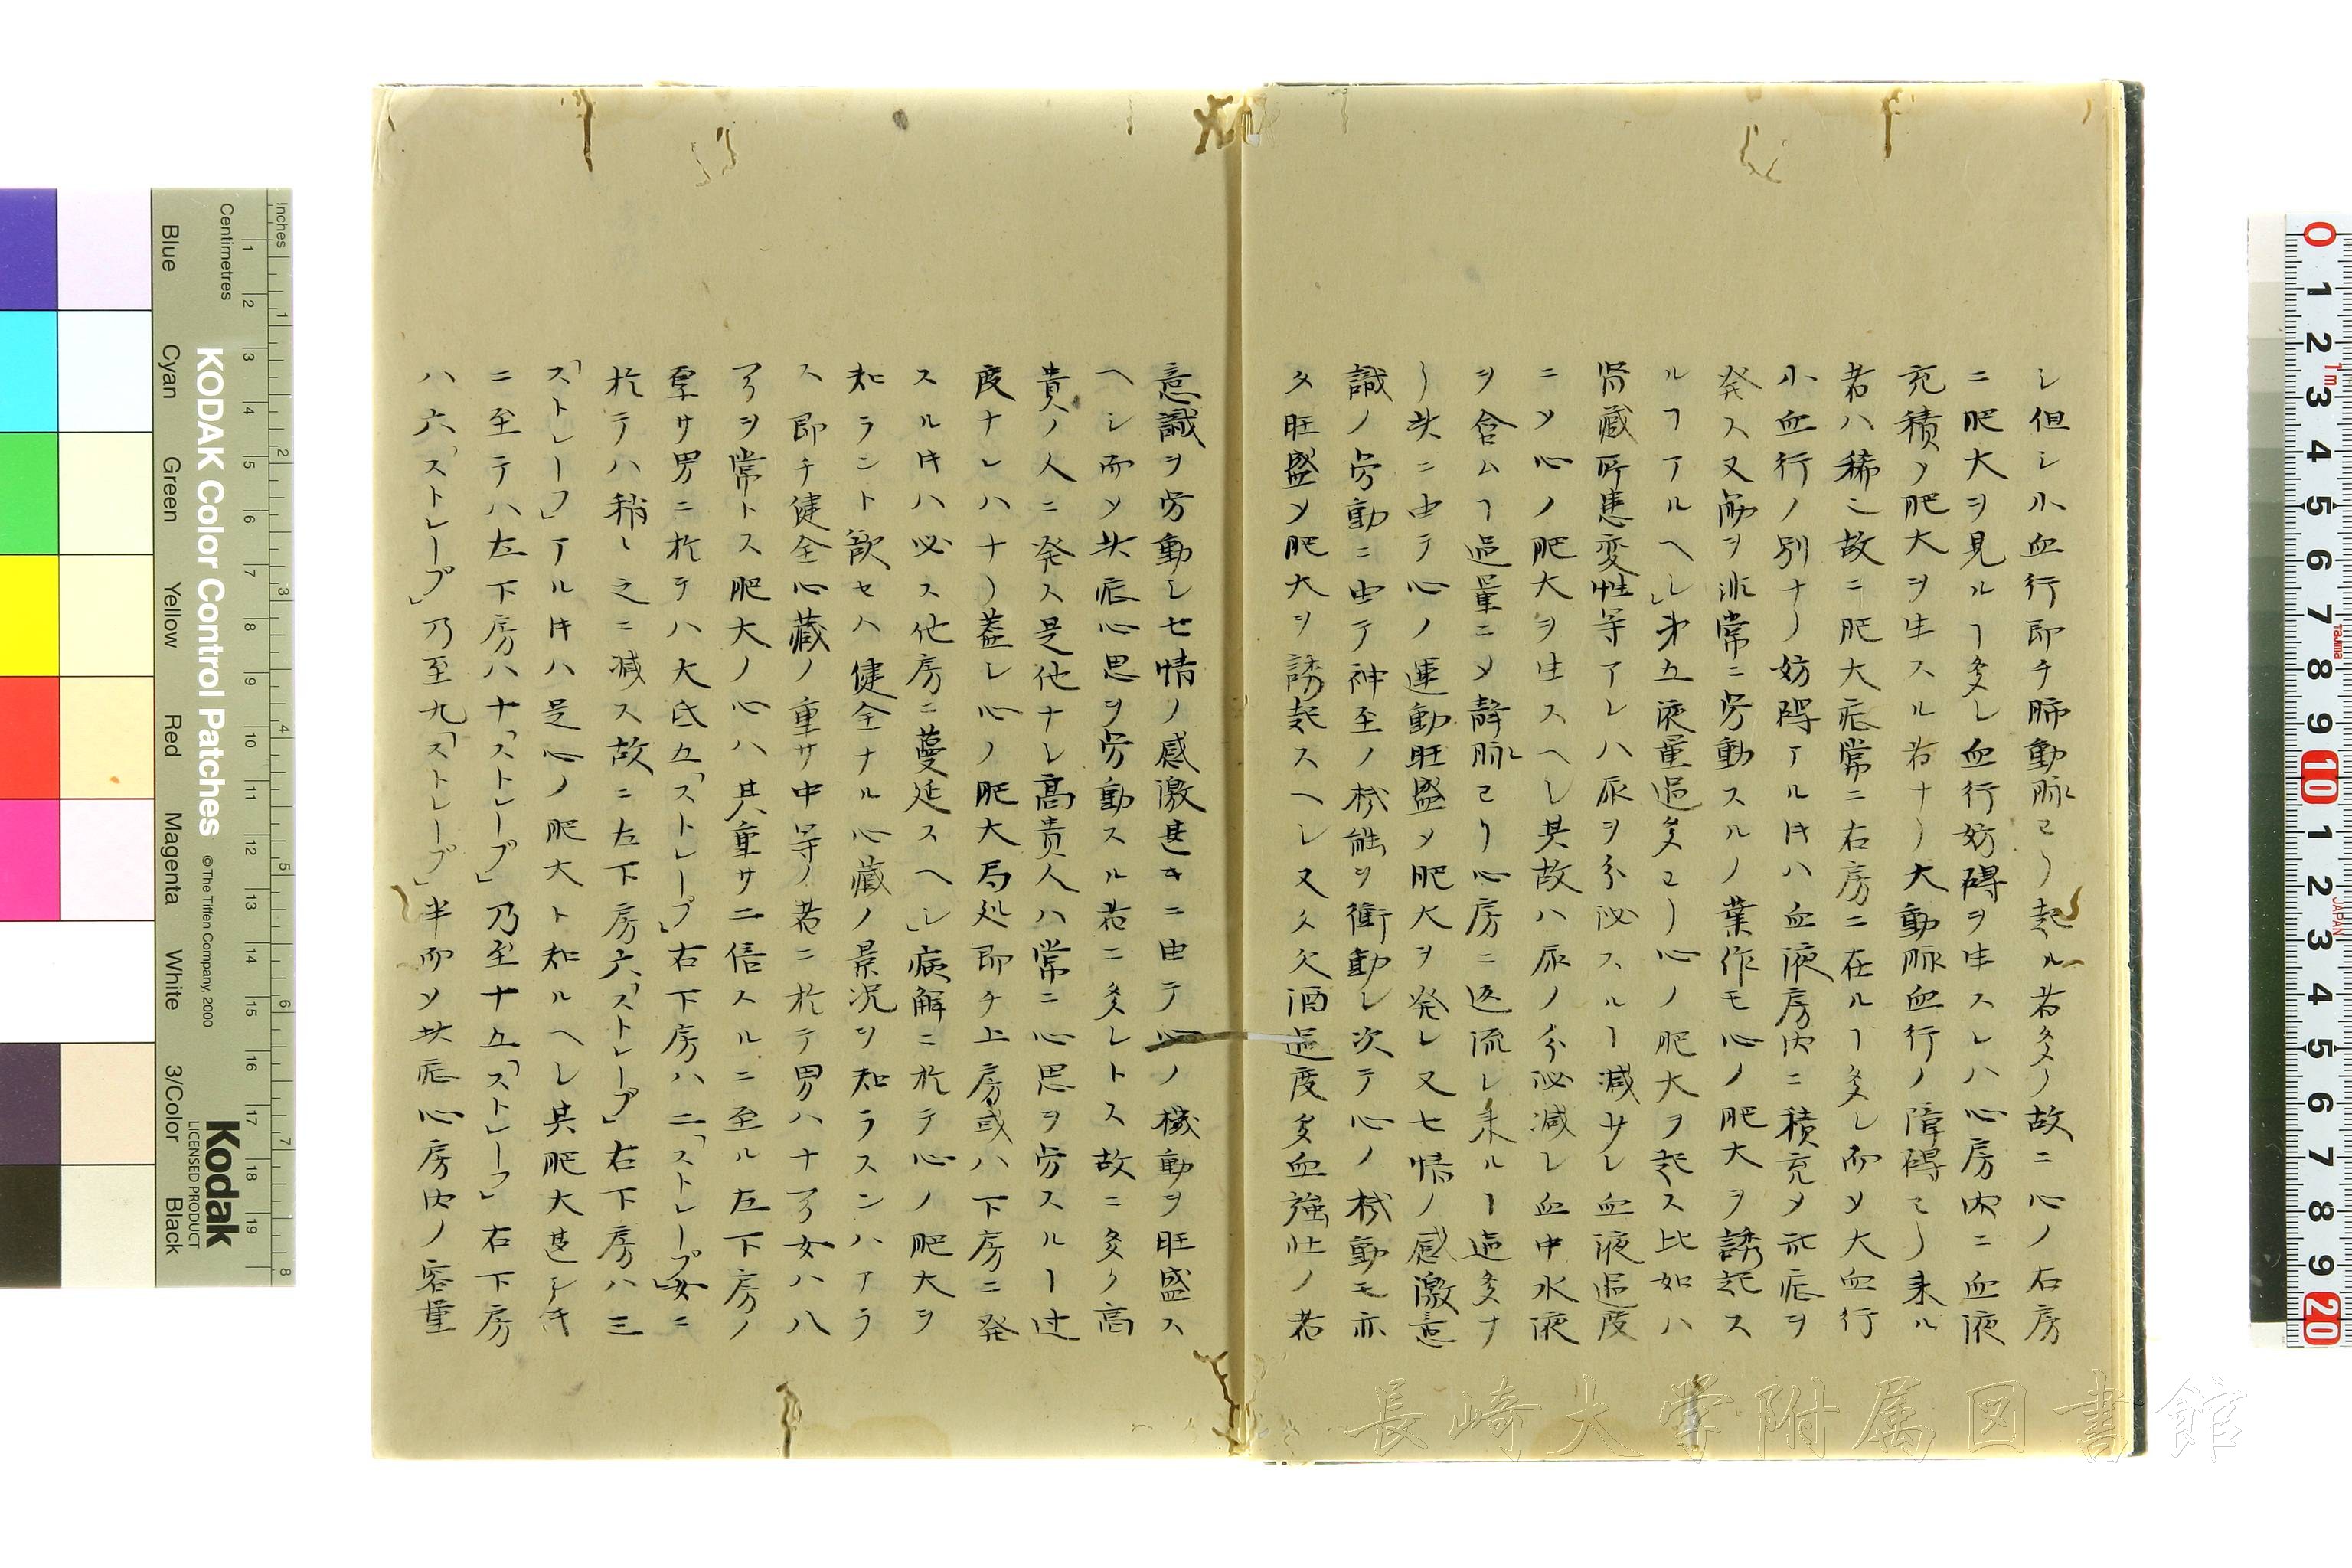 シ但シ小血行即チ肺動脉ヨリ起ル者多シ故ニ心ノ右房
ニ肥大ヲ見ルヿ多シ血行妨碍ヲ生スレハ心房内ニ血液
充積ノ肥大ヲ生スル者ナリ大動脈血行ノ障碍ヨリ来ル
者ハ稀ニ故ニ肥大症常ニ右房ニ在ルヿ多シ而メ大血行
小血行ノ別ナク妨碍アル𪜈ハ血液房内ニ積充メ此症ヲ
発ス又肺ヲ非常ニ労動スルノ業作モ心ノ肥大ヲ誘起ス
ルヿアルヘシ」第五液量過多ヨリ心ノ肥大ヲ起ス比如ハ
腎蔵所患変性等アレハ尿ヲ分泌スルヿ減サレ血液過度
ニメ心ノ肥大ヲ生スヘシ其故ハ尿ノ分泌減シ血中水液
ヲ含ムヿ過量ニメ静脉ヨリ心房ニ返流シ来ルヿ過多ナ
リ共ニ由テ心ノ運動旺盛メ肥大ヲ発シ又七情ノ感激意
識ノ労動ニ由テ神至ノ機能ヲ衝動シ次テ心ノ機動モ亦
タ旺盛メ肥大ヲ誘起スヘシ又久酒過度多血強壮ノ者
意識ヲ労動シ七情ノ感激甚キニ由テ心ノ機動ヲ旺盛ス
ヘシ而メ共症心思ヲ労動スル者ニ多シトス故ニ多ク高
貴ノ人ニ発ス是他ナシ高貴人ハ常ニ心思ヲ労スルヿ过
度ナレハナリ蓋シ心ノ肥大局処即チ上房或ハ下房ニ発
スル𪜈ハ必ス他房ニ蔓延スヘシ」病解ニ於テ心ノ肥大ヲ
知ラント欲セハ健全ナル心蔵ノ景况ヲ知ラスンハアラ
ス即チ健全心蔵ノ重サ中等ノ者ニ於テ男ハ十ヲ女ハ八
ヲヲ常トス肥大ノ心ハ其重サ二倍スルニ至ル左下房ノ
厚サ男ニ於テハ大氐五「ストレープ」右下房ハ二「ストレープ」女ニ
於テハ稍々之ニ减ス故ニ左下房六「ストレープ」右下房ハ三
「ストレープ」アル𪜈ハ是心ノ肥大ト知ルヘシ其肥大甚シキ
ニ至テハ左下房ハ十「ストレープ」乃至十五「ストレープ」右下房
ハ六「ストレープ」乃至九「ストレープ」半而メ共症心房内ノ容量
Blue
Cyan
Green
Yellow
Red
Magenta
White
3/Color
Black
Inches
Centimetres
KODAK Color Control Patches
© The Tiffen Company, 2000
Kodak
LICENSED PRODUCT
長崎大学附属図書館